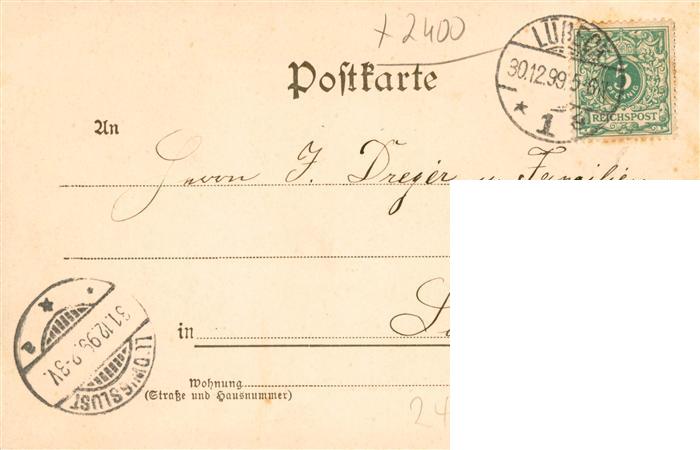 + 2400
LÜBECK
30.12.99. 5-6N
* 1 *
5
PFENNIG
REICHSPOST
Postkarte
An
Herrn F. Dreyer u. Familie
in
Wohnung
(Straße und Hausnummer)
LUDWIGSLUST
31.12.99. 2-3V.
* a
24